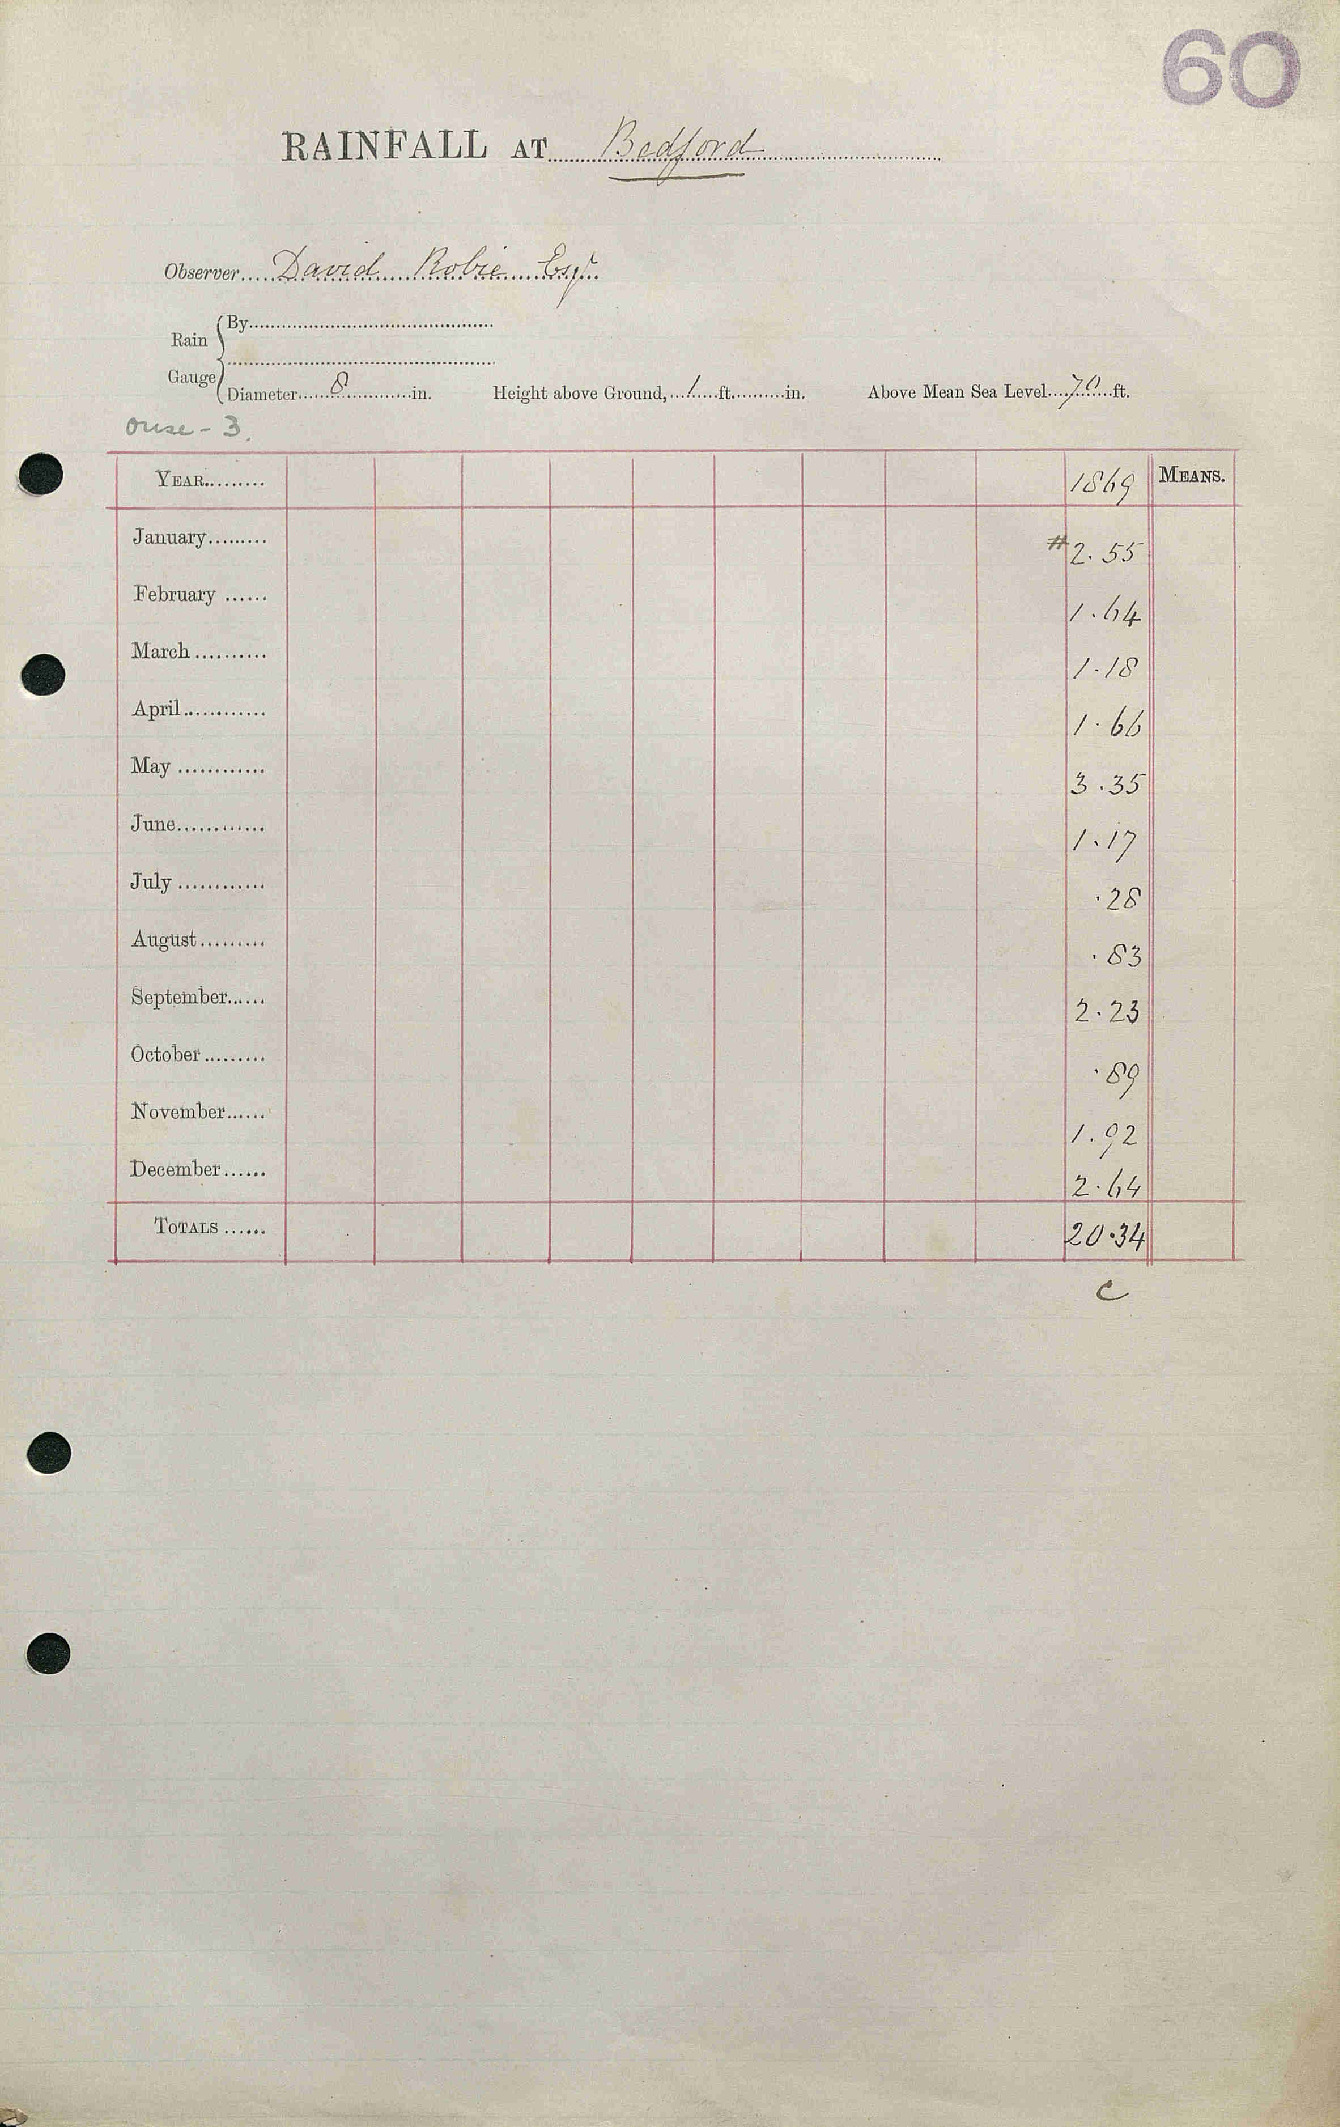 60
RAINFALL AT Bedford
Observer David Robie Esq
By
Rain
Gauge
Diameter 8 in. Height above Ground, 1 ft. in. Above Mean Sea Level 70 ft.
Ouse - 3.
YEAR 1869 MEANS.
January #2.55
February 1.64
March 1.18
April 1.66
May 3.35
June 1.17
July .28
August .83
September 2.23
October .89
November 1.92
December 2.64
TOTALS 20.34
C